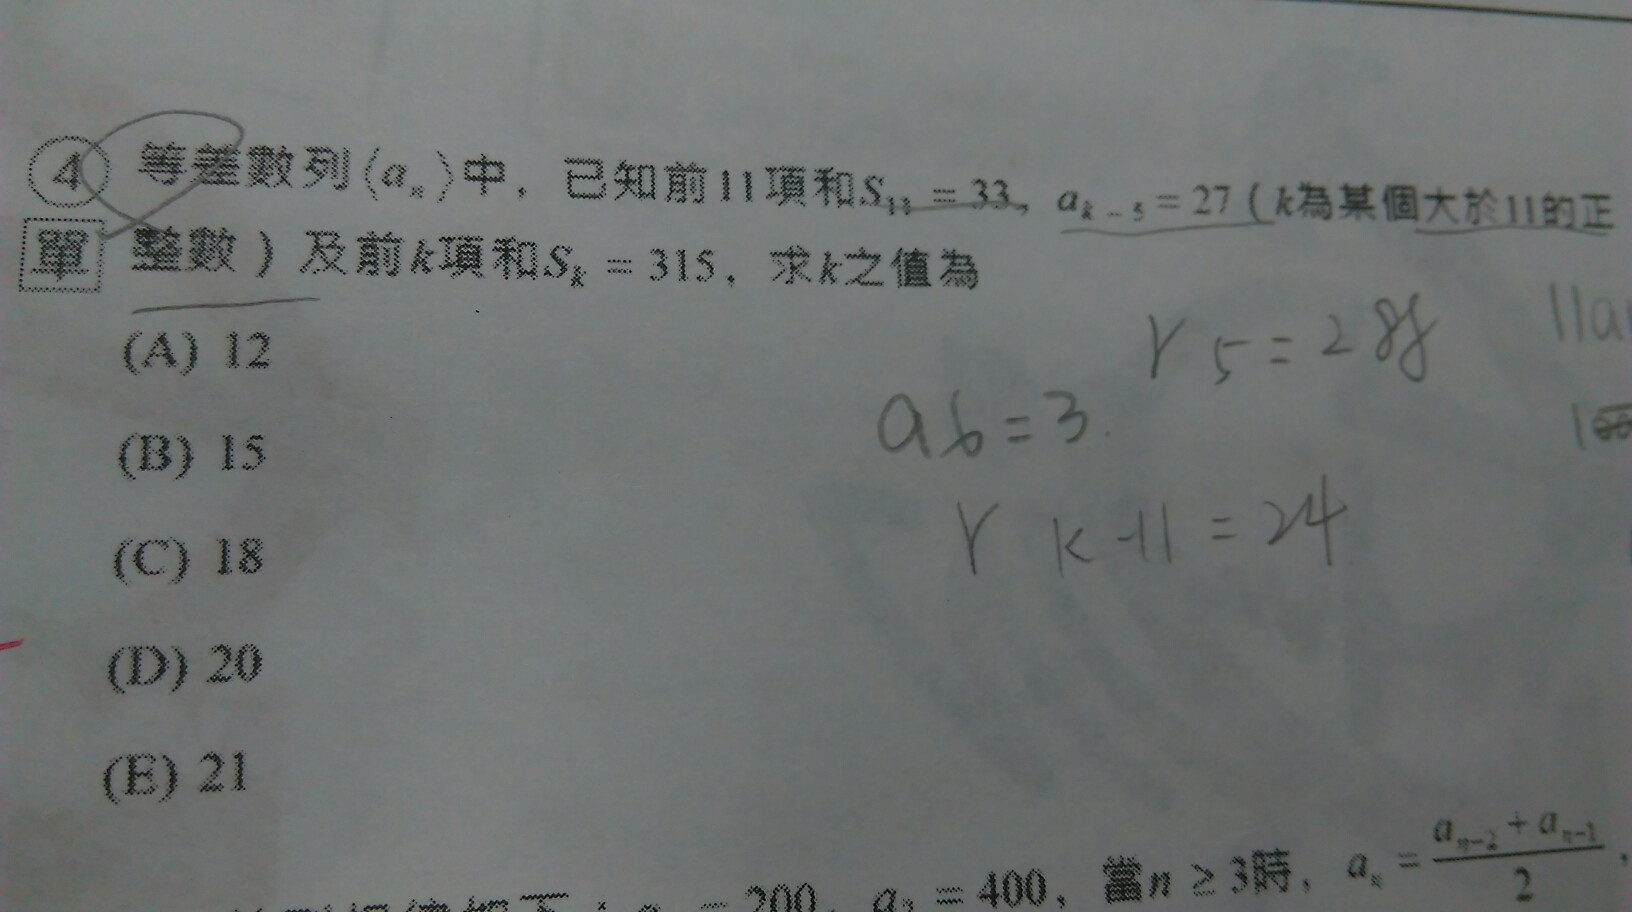 4 等差數列⟨aₙ⟩中，已知前11項和S₁₁ = 33、aₖ₋₅ = 27 ( k為某個大於11的正
單 整數 ) 及前k項和Sₖ = 315，求k之值為
(A) 12
(B) 15
(C) 18
(D) 20
(E) 21
r 5 = 288
11a
a6 = 3.
r k-11 = 24
= 200, a₂ = 400, 當n ≥ 3時, aₙ = (aₙ₋₂ + aₙ₋₁)/2,